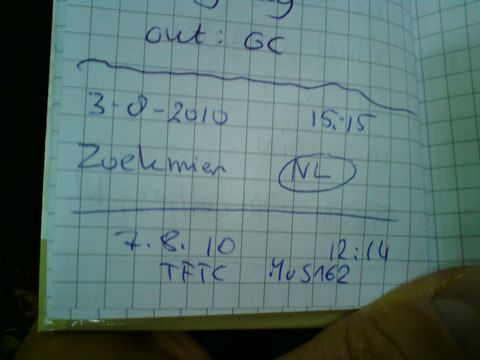 out: GC
3-8-2010 15:15
Zoekmien NL
7.8.10 12:14
TFTC MuS162